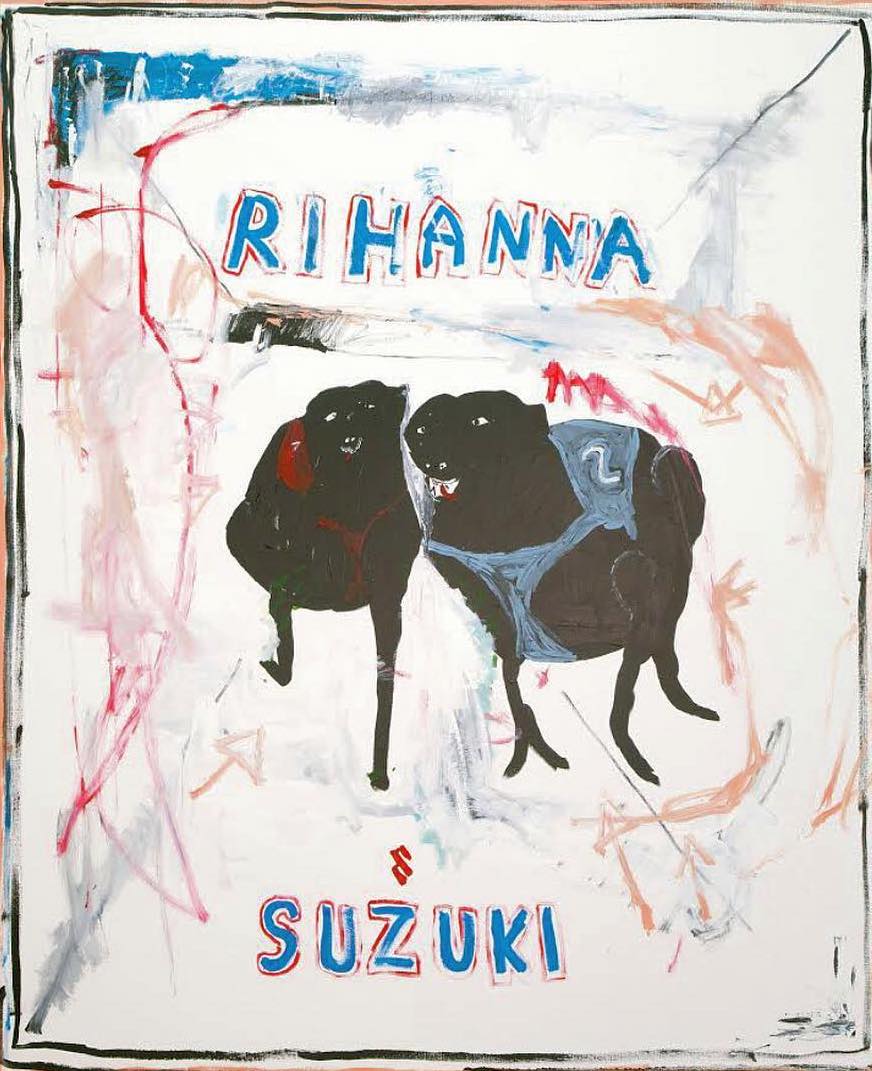 RIHANNA
2
&
SUZUKI